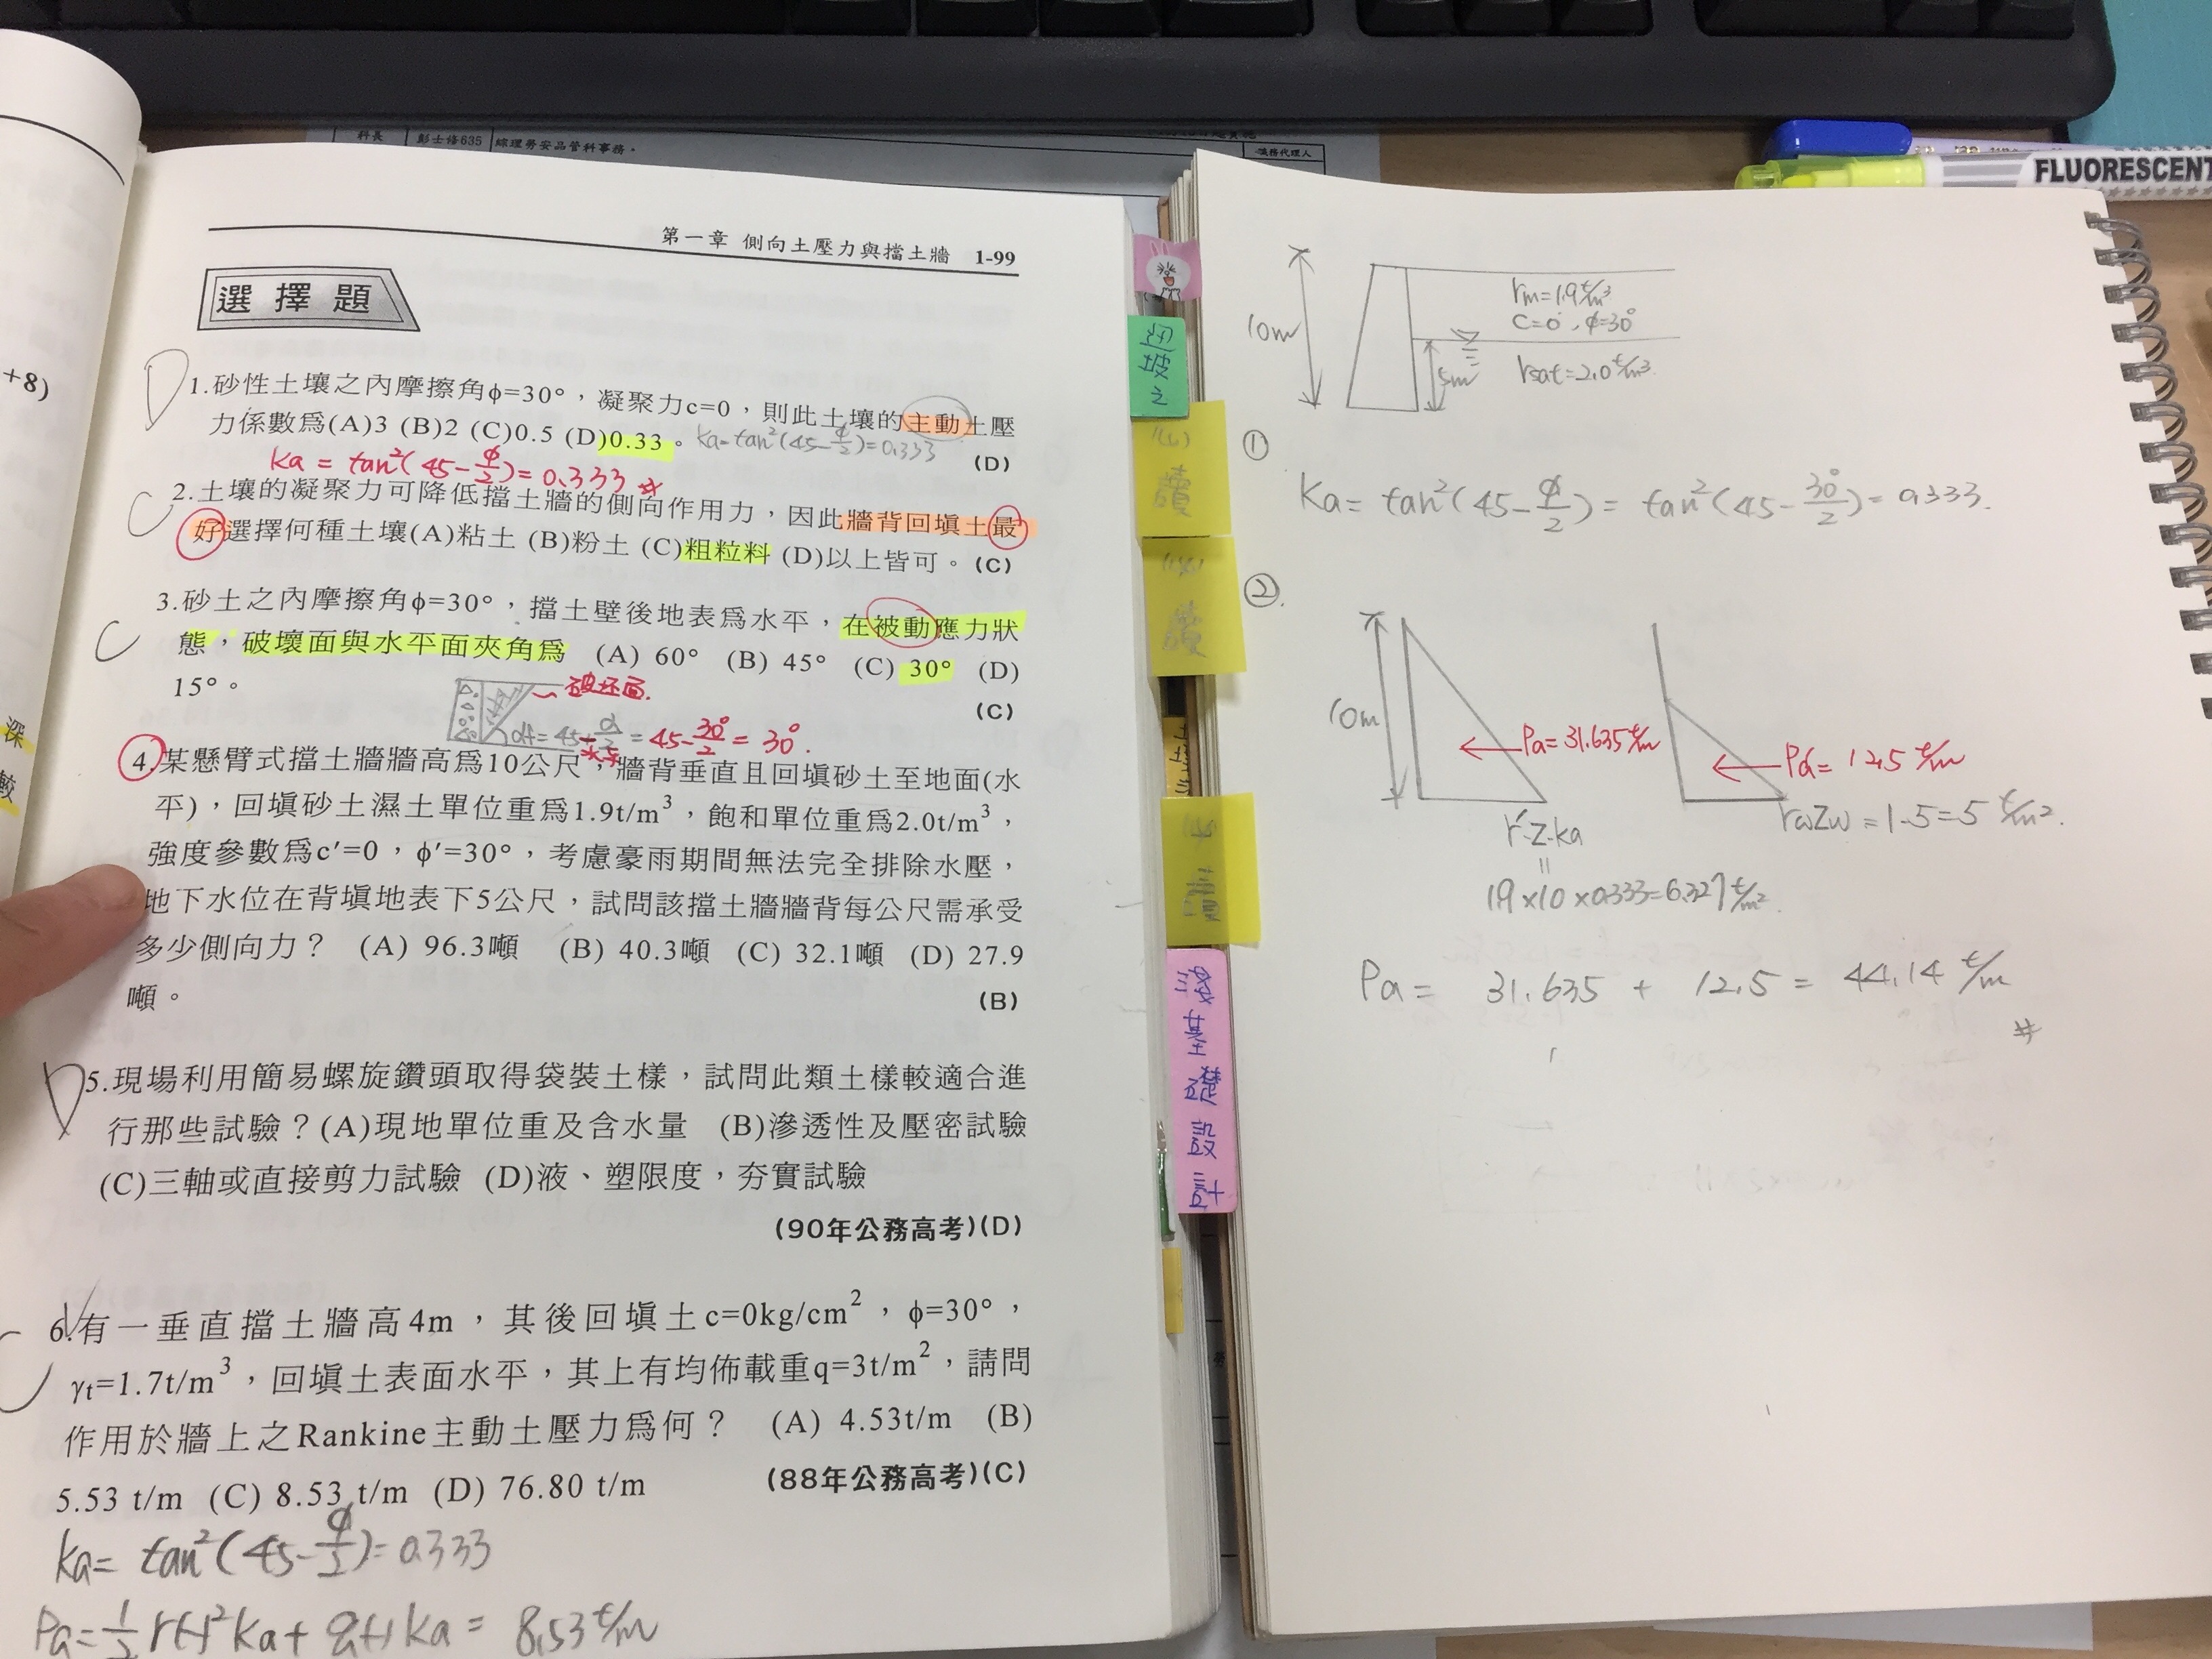 科長 彭士修635 綜理勞安品管科事務。
職務代理人
FLUORESCENT
第一章 側向土壓力與擋土牆 1-99
選擇題
+8)
深
較
1.砂性土壤之內摩擦角φ=30°，凝聚力c=0，則此土壤的主動土壓
力係數爲(A)3 (B)2 (C)0.5 (D)0.33。 Ka=tan²(45-φ/2)=0.333
(D)
Ka = tan²(45-φ/2)=0.333 #
2.土壤的凝聚力可降低擋土牆的側向作用力，因此牆背回填土最
好選擇何種土壤(A)粘土 (B)粉土 (C)粗粒料 (D)以上皆可。(C)
3.砂土之內摩擦角φ=30°，擋土壁後地表爲水平，在被動應力狀
態，破壞面與水平面夾角爲 (A) 60° (B) 45° (C) 30° (D)
15°。
(C)
破坏面.
= 45-30°/2 = 30°.
4.某懸臂式擋土牆牆高爲10公尺，牆背垂直且回填砂土至地面(水
平)，回填砂土濕土單位重爲1.9t/m³，飽和單位重爲2.0t/m³，
強度參數爲c′=0，φ′=30°，考慮豪雨期間無法完全排除水壓，
地下水位在背填地表下5公尺，試問該擋土牆牆背每公尺需承受
多少側向力？ (A) 96.3噸 (B) 40.3噸 (C) 32.1噸 (D) 27.9
噸。
(B)
5.現場利用簡易螺旋鑽頭取得袋裝土樣，試問此類土樣較適合進
行那些試驗？(A)現地單位重及含水量 (B)滲透性及壓密試驗
(C)三軸或直接剪力試驗 (D)液、塑限度，夯實試驗
(90年公務高考)(D)
6.有一垂直擋土牆高4m，其後回填土c=0kg/cm²，φ=30°，
γt=1.7t/m³，回填土表面水平，其上有均佈載重q=3t/m²，請問
作用於牆上之Rankine主動土壓力爲何？ (A) 4.53t/m (B)
5.53 t/m (C) 8.53 t/m (D) 76.80 t/m
(88年公務高考)(C)
Ka= tan²(45-φ/2)=0.333
Pa=½rH²Ka+qHKa = 8.53 t/m
讀
淺基礎設計
10m
rm=1.9t/m³
C=0, φ=30°
5m
rsat=2.0t/m³
①
Ka= tan²(45-φ/2)= tan²(45-30°/2)=0.333.
②.
10m
Pa=31.635t/m
Pa= 12.5 t/m
r'·Z·ka
rwZw =1·5=5 t/m².
1.9×10×0.333=6.327t/m².
Pa= 31.635 + 12.5 = 44.14 t/m
#